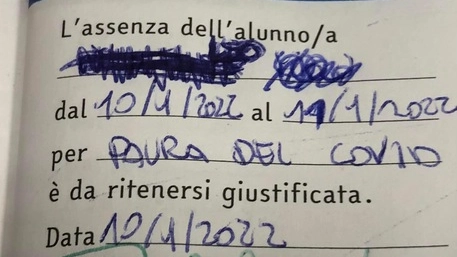 L'assenza dell'alunno/a
dal 10/1/2022 al 11/1/2022
per PAURA DEL COVID
è da ritenersi giustificata.
Data 10/1/2022